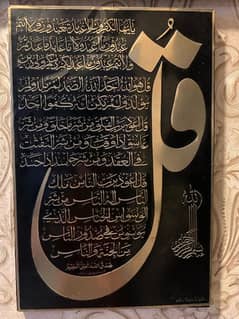 قل
يأيها الكفرون لا اعبد ما تعبدون ولا انتم
عبدون ما اعبد ولا انا عابد ما عبدتم
ولا انتم عبدون ما اعبد لكم دينكم ولي دين
قل هو الله احد الله الصمد لم يلد ولم
يولد ولم يكن له كفوا احد
قل اعوذ برب الفلق من شر ما خلق ومن شر
غاسق اذا وقب ومن شر النفثت
في العقد ومن شر حاسد اذا حسد
قل اعوذ برب الناس ملك
الناس اله الناس من شر
الوسواس الخناس الذي
يوسوس في صدور الناس
من الجنة والناس
صدق الله العظيم